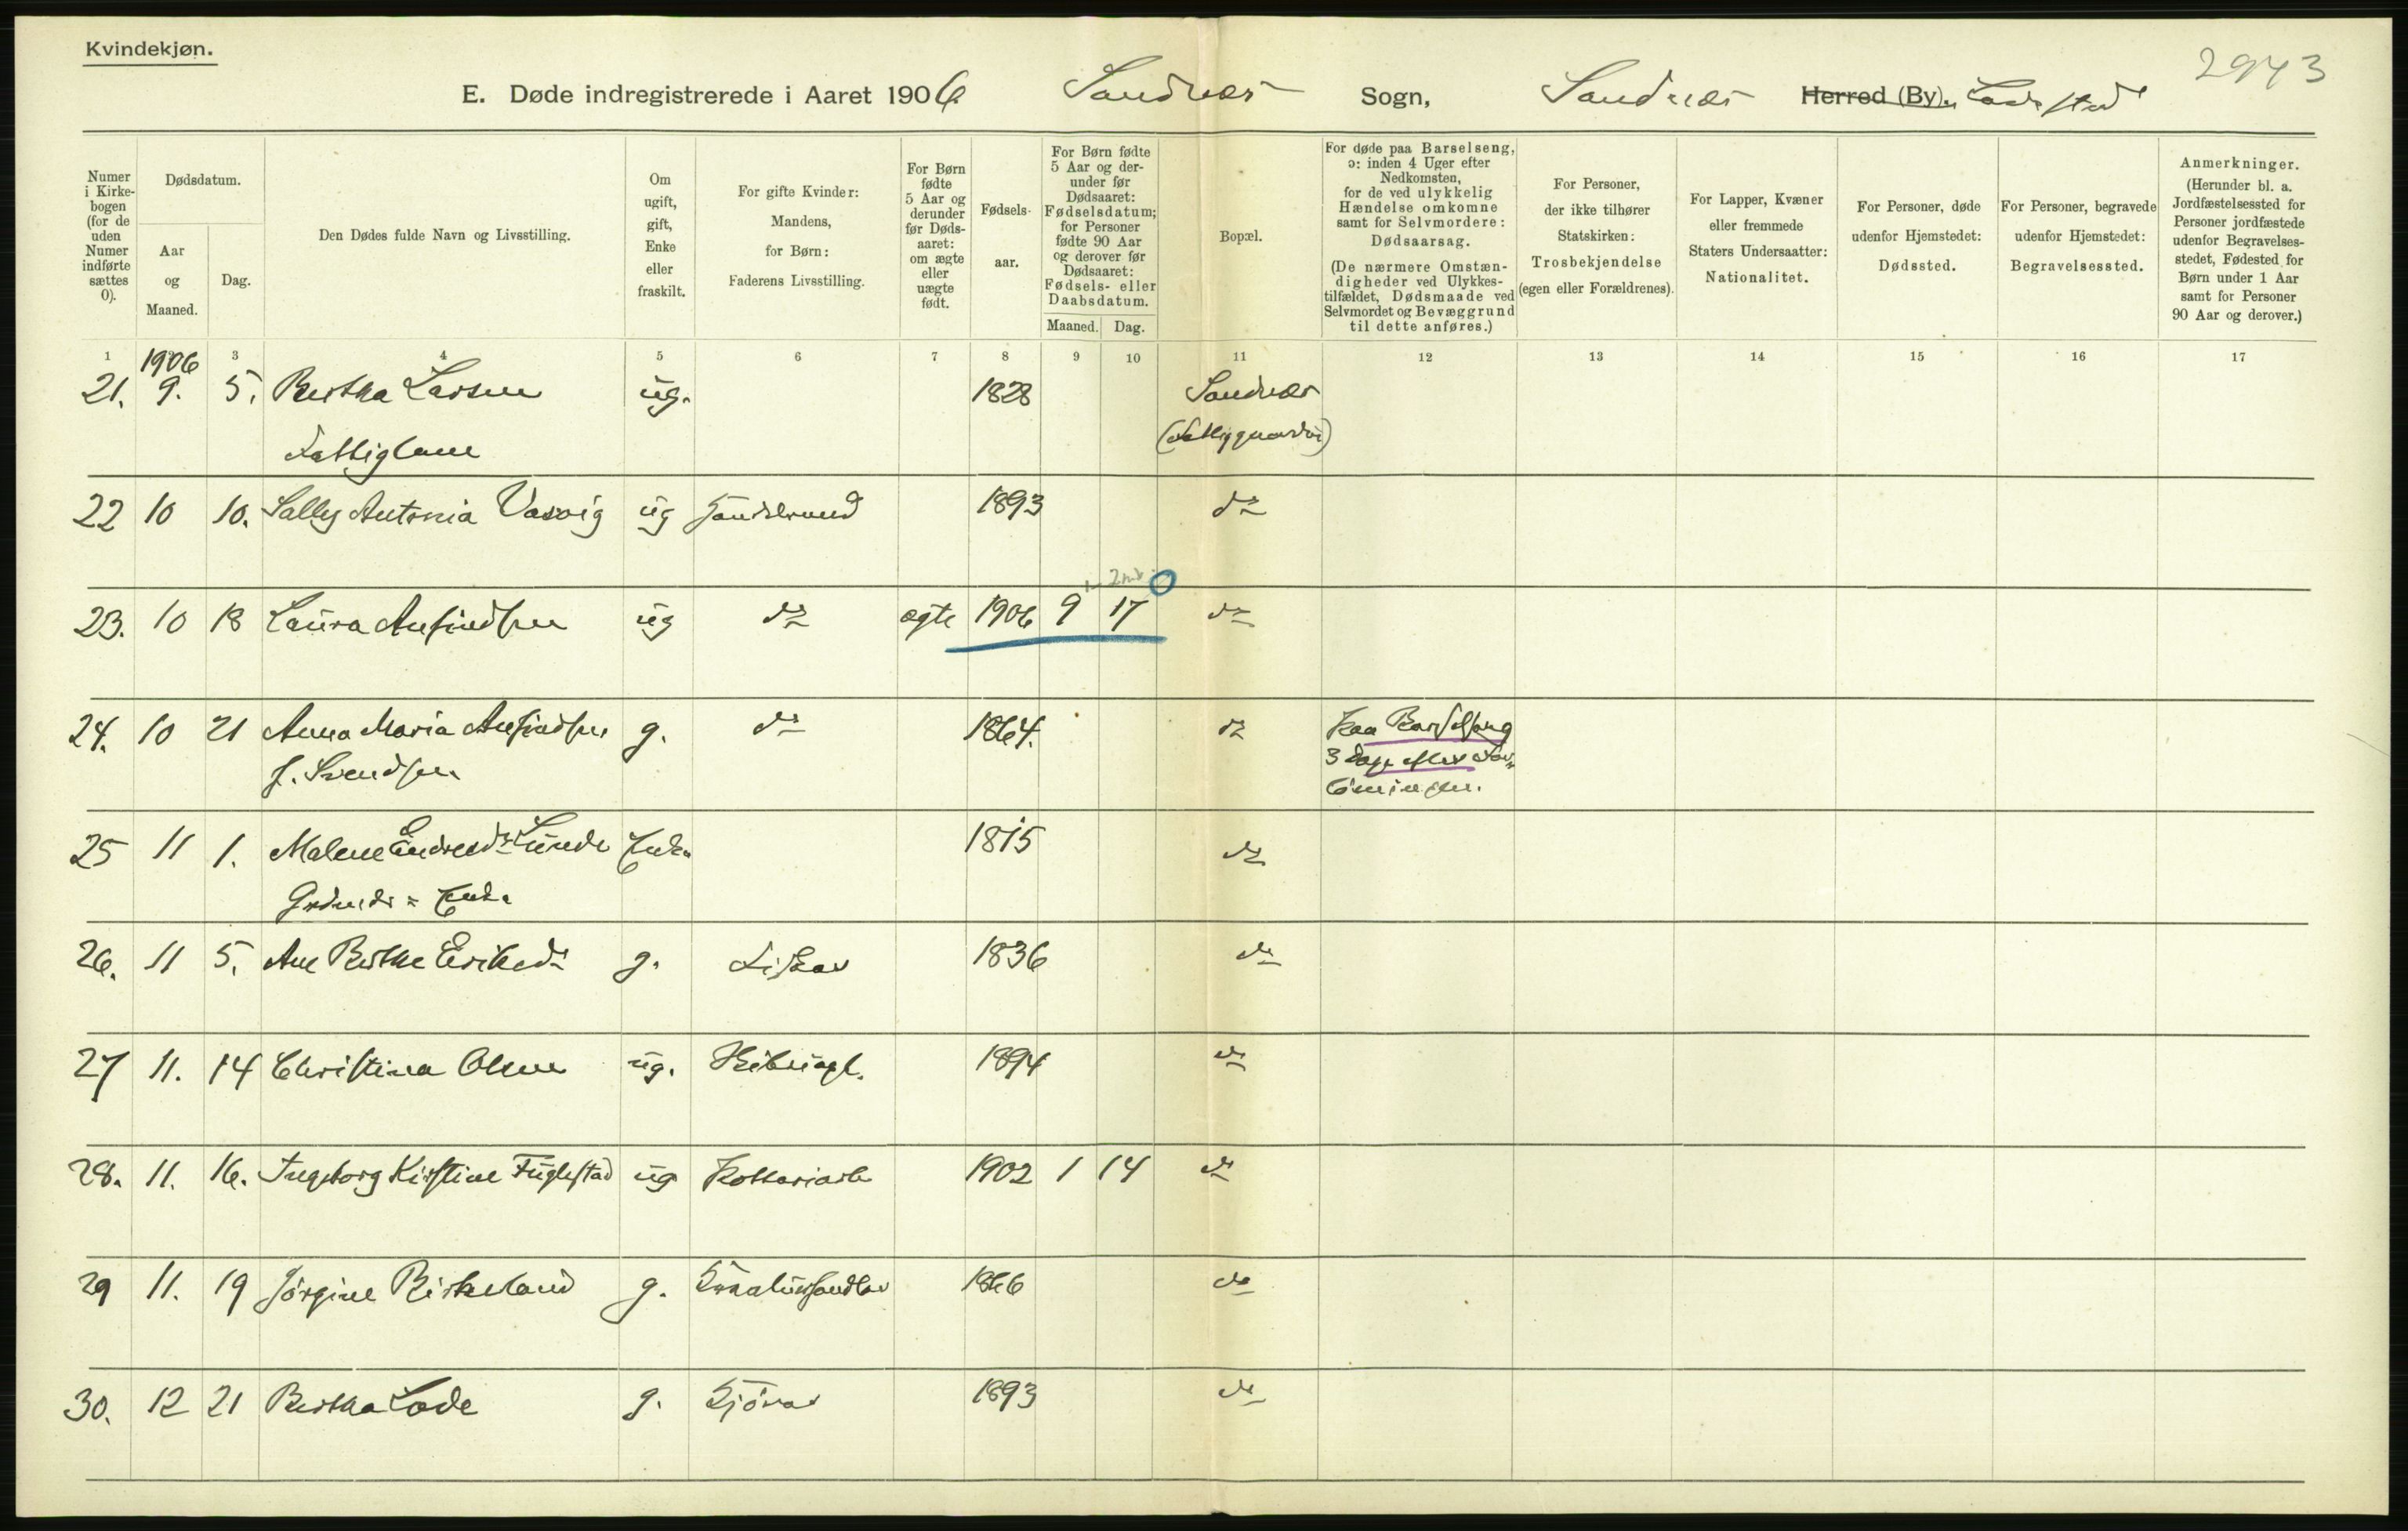 Kvindekjøn.
2943
E. Døde indregistrerede i Aaret 1906 Sandnæs Sogn, Sandnæs Herred (By). Ladested
Numer i Kirkebogen (for de uden Numer indførte sættes 0).
Dødsdatum.
Aar og Maaned.
Dag.
Den Dødes fulde Navn og Livsstilling.
Om ugift, gift, Enke eller fraskilt.
For gifte Kvinder: Mandens, for Børn: Faderens Livsstilling.
For Børn fødte 5 Aar og derunder før Dødsaaret: om ægte eller uægte født.
Fødselsaar.
For Børn fødte 5 Aar og derunder før Dødsaaret: Fødselsdatum; for Personer fødte 90 Aar og derover før Dødsaaret: Fødsels- eller Daabsdatum.
Maaned. Dag.
Bopæl.
For døde paa Barselseng, ɔ: inden 4 Uger efter Nedkomsten, for de ved ulykkelig Hændelse omkomne samt for Selvmordere: Dødsaarsag.
(De nærmere Omstændigheder ved Ulykkestilfældet, Dødsmaade ved Selvmordet og Bevæggrund til dette anføres.)
For Personer, der ikke tilhører Statskirken: Trosbekjendelse (egen eller Forældrenes).
For Lapper, Kvæner eller fremmede Staters Undersaatter: Nationalitet.
For Personer, døde udenfor Hjemstedet: Dødssted.
For Personer, begravede udenfor Hjemstedet: Begravelsessted.
Anmerkninger.
(Herunder bl. a. Jordfæstelsessted for Personer jordfæstede udenfor Begravelsesstedet, Fødested for Børn under 1 Aar samt for Personer 90 Aar og derover.)
1 3 4 5 6 7 8 9 10 11 12 13 14 15 16 17
1906
21. 9. 5. Bertha Larsen ug. 1828 Sandnæs
Fattiglem (Fattiggaarden)
22 10 10. Sally Antonia Vasvig ug 1893 do
23. 10 18 Laura Anfindsen ug do ægte 1906 9 17 do
24. 10 21 Anna Maria Anfindsen g. do 1864. do Paa Barselseng
f. Svendsen 3 Dage efter For-
løsningen.
25 11 1. Malene Endresdr Lunde Enke 1815 do
Grdmds = Enke
26. 11 5. Ane Berthe Eriksdr g. Fisker 1836 do
27 11. 14 Christina Olsen ug. 1894 do
28. 11. 16. Ingeborg Kirstine Fuglestad ug Potteriarb 1902 1 14 do
29 11. 19 Jørgine Birkeland g. Kreaturhandler 1866 do
30. 12 21 Bertha Lode g. 1893 do